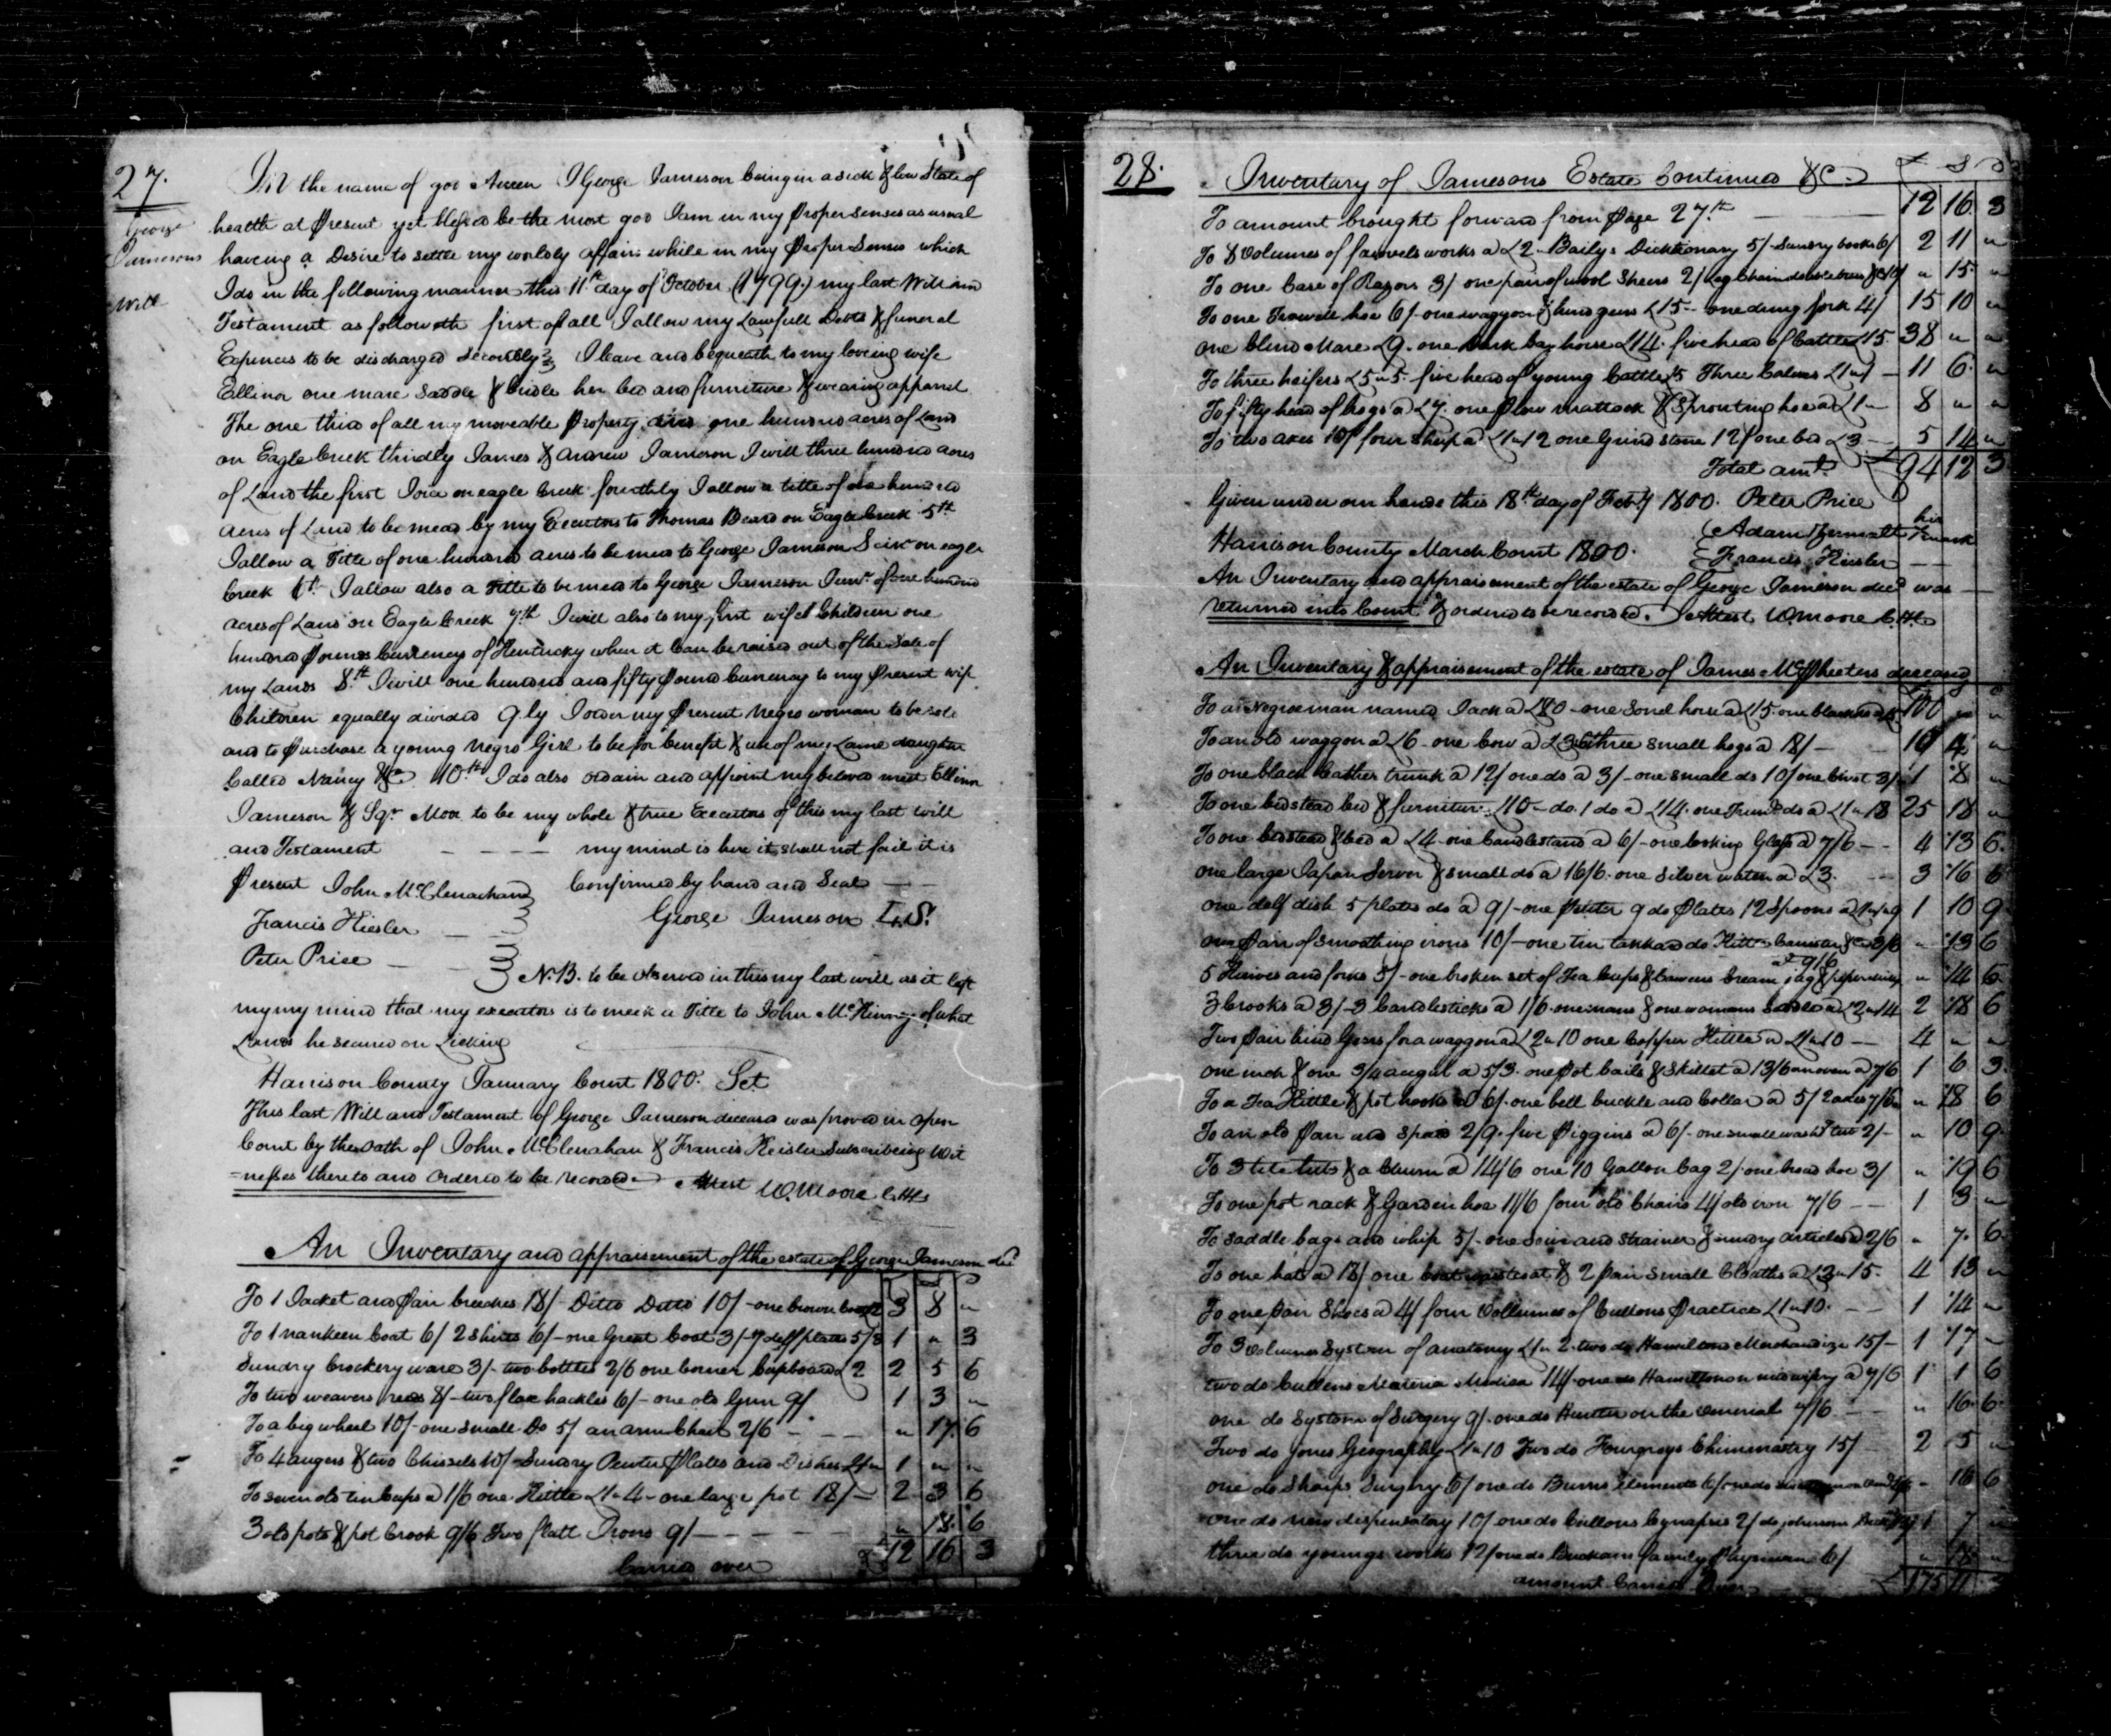 27.
George
Jamesons
Will
In the name of god Ameen I George Jameson being in a sick & low State of
health at Present yet blessed be the most god I am in my Proper senses as usual
haveing a Desire to settle my worldly affairs while in my Proper Senses which
I do in the following manner this 11th day of October (1799.) my last Will and
Testament as followeth first of all I allow my Lawfull Debts & funeral
Expences to be discharged Secondly I leave and bequeath to my loveing wife
Ellinor one mare Saddle & bridle her bed and furniture & wearing apparel
The one third of all my moveable Property and one hundred acres of Land
on Eagle Creek thirdly James & Andrew Jameson I will three hundred acres
of Land the first I own on eagle Creek fourthly I allow a title of one hundred
acres of Land to be mead by my Executors to Thomas Beard on Eagle Creek 5th
I allow a Title of one hundred acres to be mead to George Jameson Seir on eagle
Creek 6th I allow also a Title to be mead to George Jameson Junr of one hundred
acres of Land on Eagle Creek 7th I will also to my first wifes Children one
hundred Pounds Currency of Kentucky when it Can be raised out of the Sale of
my Lands 8th I will one hundred and fifty Pound Currency to my Present wife
Children equally divided 9ly I order my Present Negro woman to be sold
and to Purchase a young Negro Girl to be for benefit & use of my Lame daughter
Called Nancy &C 10th I do also ordain and appoint my beloved Ellinor
Jameson & Sqr Moor to be my whole & true Executors of this my last will
and Testament — — — — my mind is here it shall not fail it is
Present John McClenachand Confirmed by hand and Seal — —
Francis Kiesler — — George Jameson L.S.
Peter Price — —
N.B. to be observed in this my last will as it left
my my mind that my executors is to meek a Title to John McKinney of what
Lands he secured on Licking
Harrison County January Court 1800. Sct
This last Will and Testament of George Jameson deceased was proved in open
Court by the Oath of John McClenahan & Francis Keisler Subscribeing Wit
=nesses thereto and ordered to be recorded Attest W. Moore C.H.C
An Inventory and appraisement of the estate of George Jameson decd
To 1 Jacket and Pair breeches 18/- Ditto Ditto 10/- one brown 3 8 "
To 1 nankeen Coat 6/ 2 Shirts 6/- one Great Coat 3/- 7 delf plates 5/3 1 " 3
Sundry Crockery ware 3/- two bottles 2/6 one Corner Cupboard £2 2 5 6
To two weavers reeds 8/- two flax hackles 6/- one old Gun 9/ 1 3 "
To a big wheel 10/- one small Do 5/ an arm Chair 2/6 — " 17. 6
To 4 augers & two Chissels 10/- Sundry Pewter Plates and Dishes 1 " "
To seven old tin Cups a 1/6 one Kittle £1"4- one large pot 18/- 2 3 6
3 old pots & pot Crook 9/6 Two flatt Irons 9/ — — — — " 18. 6
Carried over £12 16 3
28.
Inventory of Jamesons Estate Continued &C. £ S D
To amount brought forward from Page 27th — 12 16. 3
To 8 Volumes of works a £2. Baily's Dicktionary 5/- Sundry books 6/ 2 11 "
To one Case of Razors 3/ one pair of wool Shears 2/ Log Chain double trees " 15 "
To one Trowell hoe 6/- one waggon & hind geers £15 - one dung fork 4/ 15 10 "
one blind Mare £9. one dark bay horse £14. five head of Cattle £15 38 " "
To three heifers £5"5. five head of young Cattle £5 Three Calves £1"1 — 11 6. "
To fifty head of hogs a £7. one Plow mattock & Sprouting hoe a £1" 8 " "
To two axes 10/ four Sheep a £1"12 one Grind stone 12/ one bed £3 — 5 14 "
Total amt £94 12 3
Given under our hands this 18th day of Feby 1800. Peter Price
his
Adam mark
Harrison County March Court 1800. Francis Keisler — —
An Inventory and appraisement of the estate of George Jameson decd was —
returned into Court & ordered to be recorded. Attest W. Moore C.H.C
An Inventory & appraisement of the estate of James McPheeters deceased
To a Negroe man named Jack a £80 - one Sorrel horse a £15. one black 100 " "
To an old waggon a £6 - one Cow a three small hogs a 18/- 10 4 "
To one black leather trunk a 12/ one do a 3/- one small do 10/ one 3/ 1 8 "
To one bedstead bed & furniture £10 - do. 1 do a £14. one do a £1"18 25 18 "
To one bedstead & bed a £4 - one Candlestand a 6/- one looking Glass a 7/6 — 4 13 6.
one large Japan Server & small do a 16/6. one Silver watch a £3. — 3 16 6
one delf dish 5 plates do a 9/- one Pewter 9 do Plates 12 Spoons a £1"1"9 1 10 9
one Pair of smoothing irons 10/- one tin tankard do Kittle Canister &c 3/6 " 13 6
at 9/6
5 Knives and forks 5/- one broken set of Tea Cups & Sawcers Cream jug & " 14 6
3 Crooks a 3/- 3 Candlesticks a 1/6. one mans & one womans Saddle a £2"14 2 18 6
Two Pair hind Gears for a waggon a £2"10 one Copper Kittle a £1"10 — 4 " "
one inch & one 3/4 augur a 5/3. one Pot bails & Skillet a 13/6 an oven a 7/6 1 6 3.
To a Tea Kittle & pot hooks a 6/. one bell buckle and Collar a 5/ 2 axes 7/6 " 18 6
To an old Pan and Spade 2/9. five Piggins a 6/- one small washg tub 2/- " 10 9.
To 3 tubs & a Churn a 14/6 one 10 Gallon Cag 2/. one broad hoe 3/ " 19 6
To one pot rack & Garden hoe 11/6 four old Chairs 4/ old iron 7/6 — — 1 3 "
To saddle bags and whip 5/- one Seive and strainer & sundry articles a 2/6 " 7. 6.
To one hat a 18/ one & 2 Pair small Cloaths a £3"15. 4 13 "
To one Pair Shoes a 4/ four Vollumes of Cullens Practice £1"10. — — 1 14 "
To 3 Volumes System of anatomy £1"2. two do Hamiltons 15/- 1 17 "
two do Cullens Materia Medica 14/. one do Hamilton on midwifry a 7/6 1 1 6
one do System of Surgery 9/. one do Hunter on the Venerial 7/6. — " 16. 6.
Two do Jones Geography £1"10 Two do Fourgroys Chimmastry 15/ 2 5 "
one do Sharps Surgery 6/ one do Burns Elements 6/ one do - 16 6
one do new dispensatory 10/ one do Cullons Cynapsis 2/ do Johnsons 1 7 "
three do youngs works 12/ one do Buckans family Physician 6/ " 18 "
amount Carried Over £175 11 3